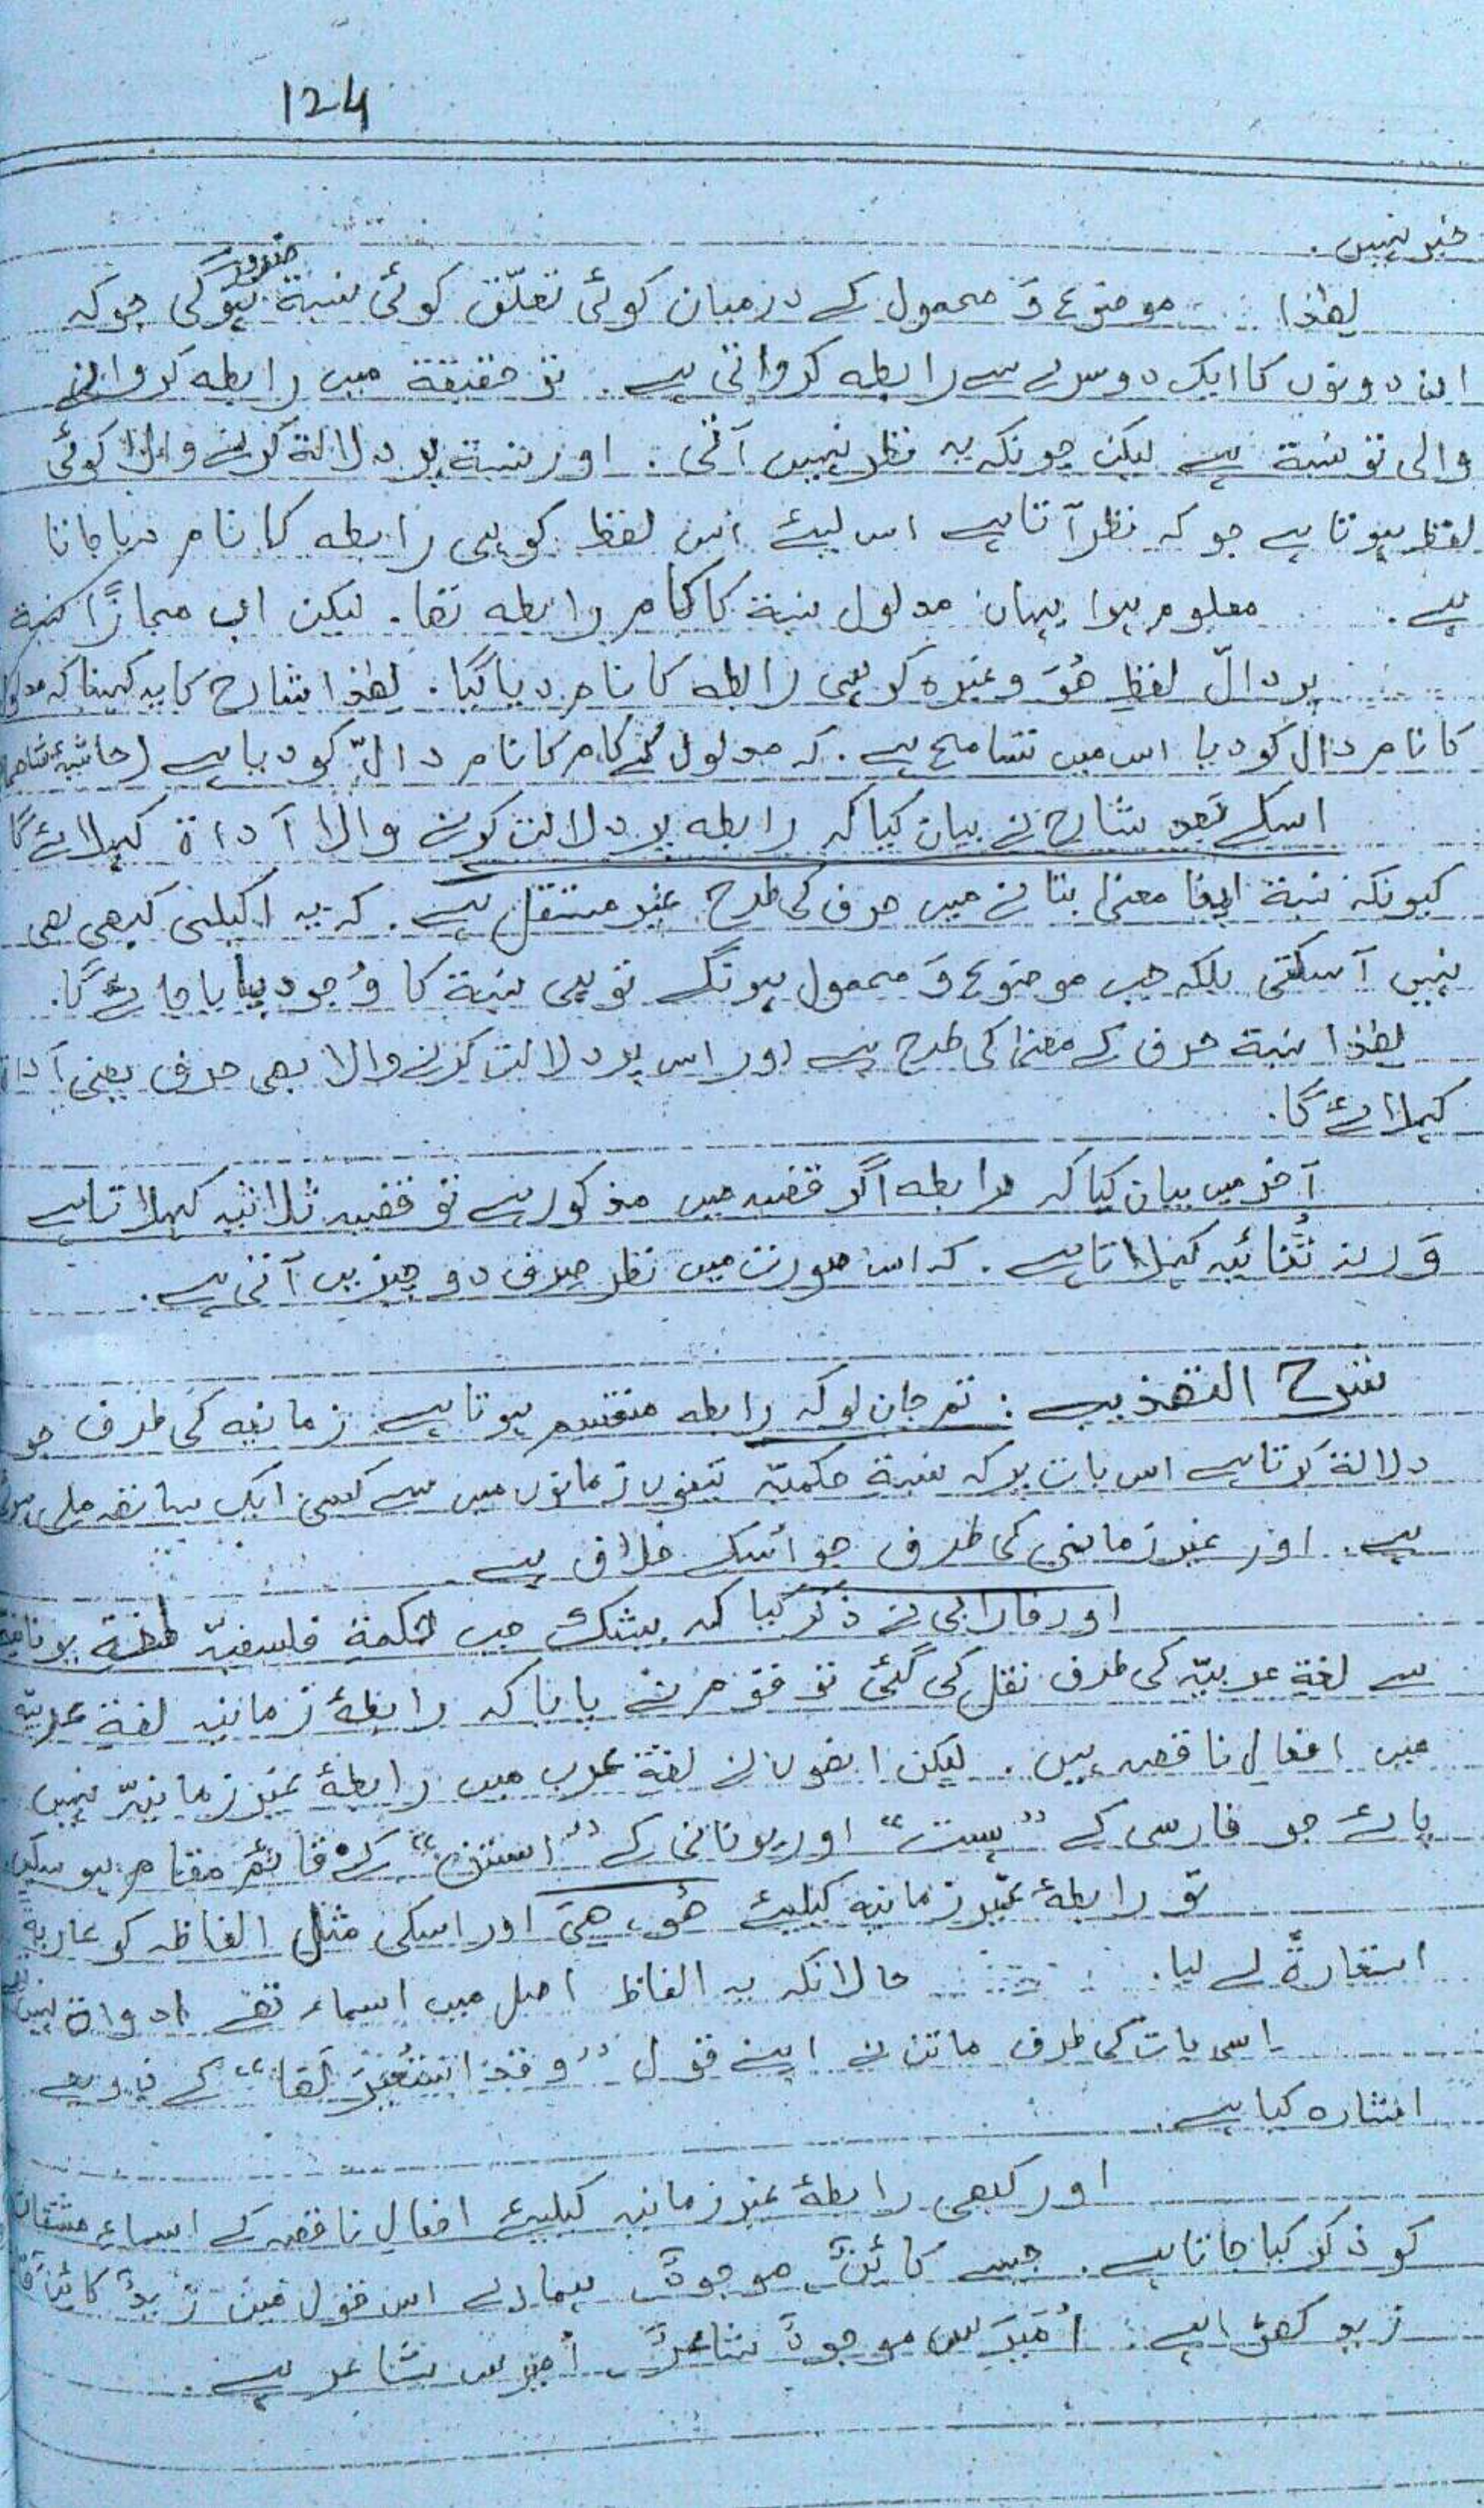 124
خبر نہیں.
لھٰذا موضوع وَ محمول کے درمیان کوئی تعلّق کوئی نسبة ضرور ہوگی جو کہ
ان دونوں کا ایک دوسرے سے رابطہ کرواتی ہے. تو حقیقة میں رابطہ کروانے
والی تو نسبة ہے لیکن چونکہ یہ نظر نہیں آتی. اور نسبة پر دلالة کرنے والا کوئی
لفظ ہوتا ہے جو کہ نظر آتا ہے اس لیئے اس لفظ کو ہی رابطہ کا نام دیا جاتا
ہے. معلوم ہوا یہاں مدلول نسبة کا کام رابطہ تھا. لیکن اب مجازًا نسبة
پر دالّ لفظِ ھُوَ وغیرہ کو ہی رابطہ کا نام دیا گیا. لھٰذا شارح کا یہ کہنا کہ مدلول
کا نام دال کو دیا اس میں تسامح ہے. کہ مدلول کے کام کا نام دالّ کو دیا ہے (حاشیۂ
اسکے بعد شارح نے بیان کیا کہ رابطہ پر دلالت کرنے والا أداة کہلائے گا
کیونکہ نسبة اپنا معنیٰ بتانے میں حرف کی طرح غیر مستقل ہے. کہ یہ اکیلی کبھی بھی
نہیں آسکتی بلکہ جب موضوع وَ محمول ہونگے تو ہی نسبة کا وُجود پایا جائے گا.
لھٰذا نسبة حرف کے معنیٰ کی طرح ہے اور اس پر دلالت کرنے والا بھی حرف یعنی أداة
کہلائے گا.
آخر میں بیان کیا کہ رابطہ اگر قضیہ میں مذکور ہے تو قضیہ ثلاثیہ کہلاتا ہے
وَرنہ ثُنائیہ کہلاتا ہے. کہ اس صورت میں نظر صرف دو چیزیں آتی ہے.
شرح التھذیب : تم جان لو کہ رابطہ منقسم ہوتا ہے زمانیہ کی طرف جو
دلالة کرتا ہے اس بات پر کہ نسبة حکمیّہ تینوں زمانوں میں سے کسی ایک ساتھ ملی ہوئی
ہے. اور غیر زمانی کی طرف جو اُسکے خلاف ہے
اور فارابی نے ذکر کیا کہ بیشک جب حکمة فلسفیّہ لغة یونانیہ
سے لغة عربیّہ کی طرف نقل کی گئی تو قوم نے پایا کہ رابطۂ زمانیہ لغة عربیّہ
میں افعالِ ناقصہ ہیں. لیکن انھوں نے لغة عرب میں رابطۂ غیر زمانیّہ نہیں
پائے جو فارسی کے "ہست" اور یونانی کے "استن" کے قائم مقام ہو سکے
تو رابطۂ غیر زمانیہ کیلیئے ھُو، ھیَ اور اسکی مثل الفاظ کو عاریةً
استعارةً لے لیا. حالانکہ یہ الفاظ اصل میں اسماء تھے ادواة نہیں تھے
اسی بات کی طرف ماتن نے اپنے قول "وقد استُعِیْرَ لَھَا" کے ذریعے
اشارہ کیا ہے.
اور کبھی رابطۂ غیر زمانیہ کیلیئے افعالِ ناقصہ کے اسماءِ مشتقات
کو ذکر کیا جاتا ہے. جیسے کائنٌ، موجودٌ ہمارے اس قول میں زیدٌ کائنٌ
زید کھڑا ہے. اُمَیْرَس موجودٌ شاعرٌ، اُمیرس شاعر ہے.